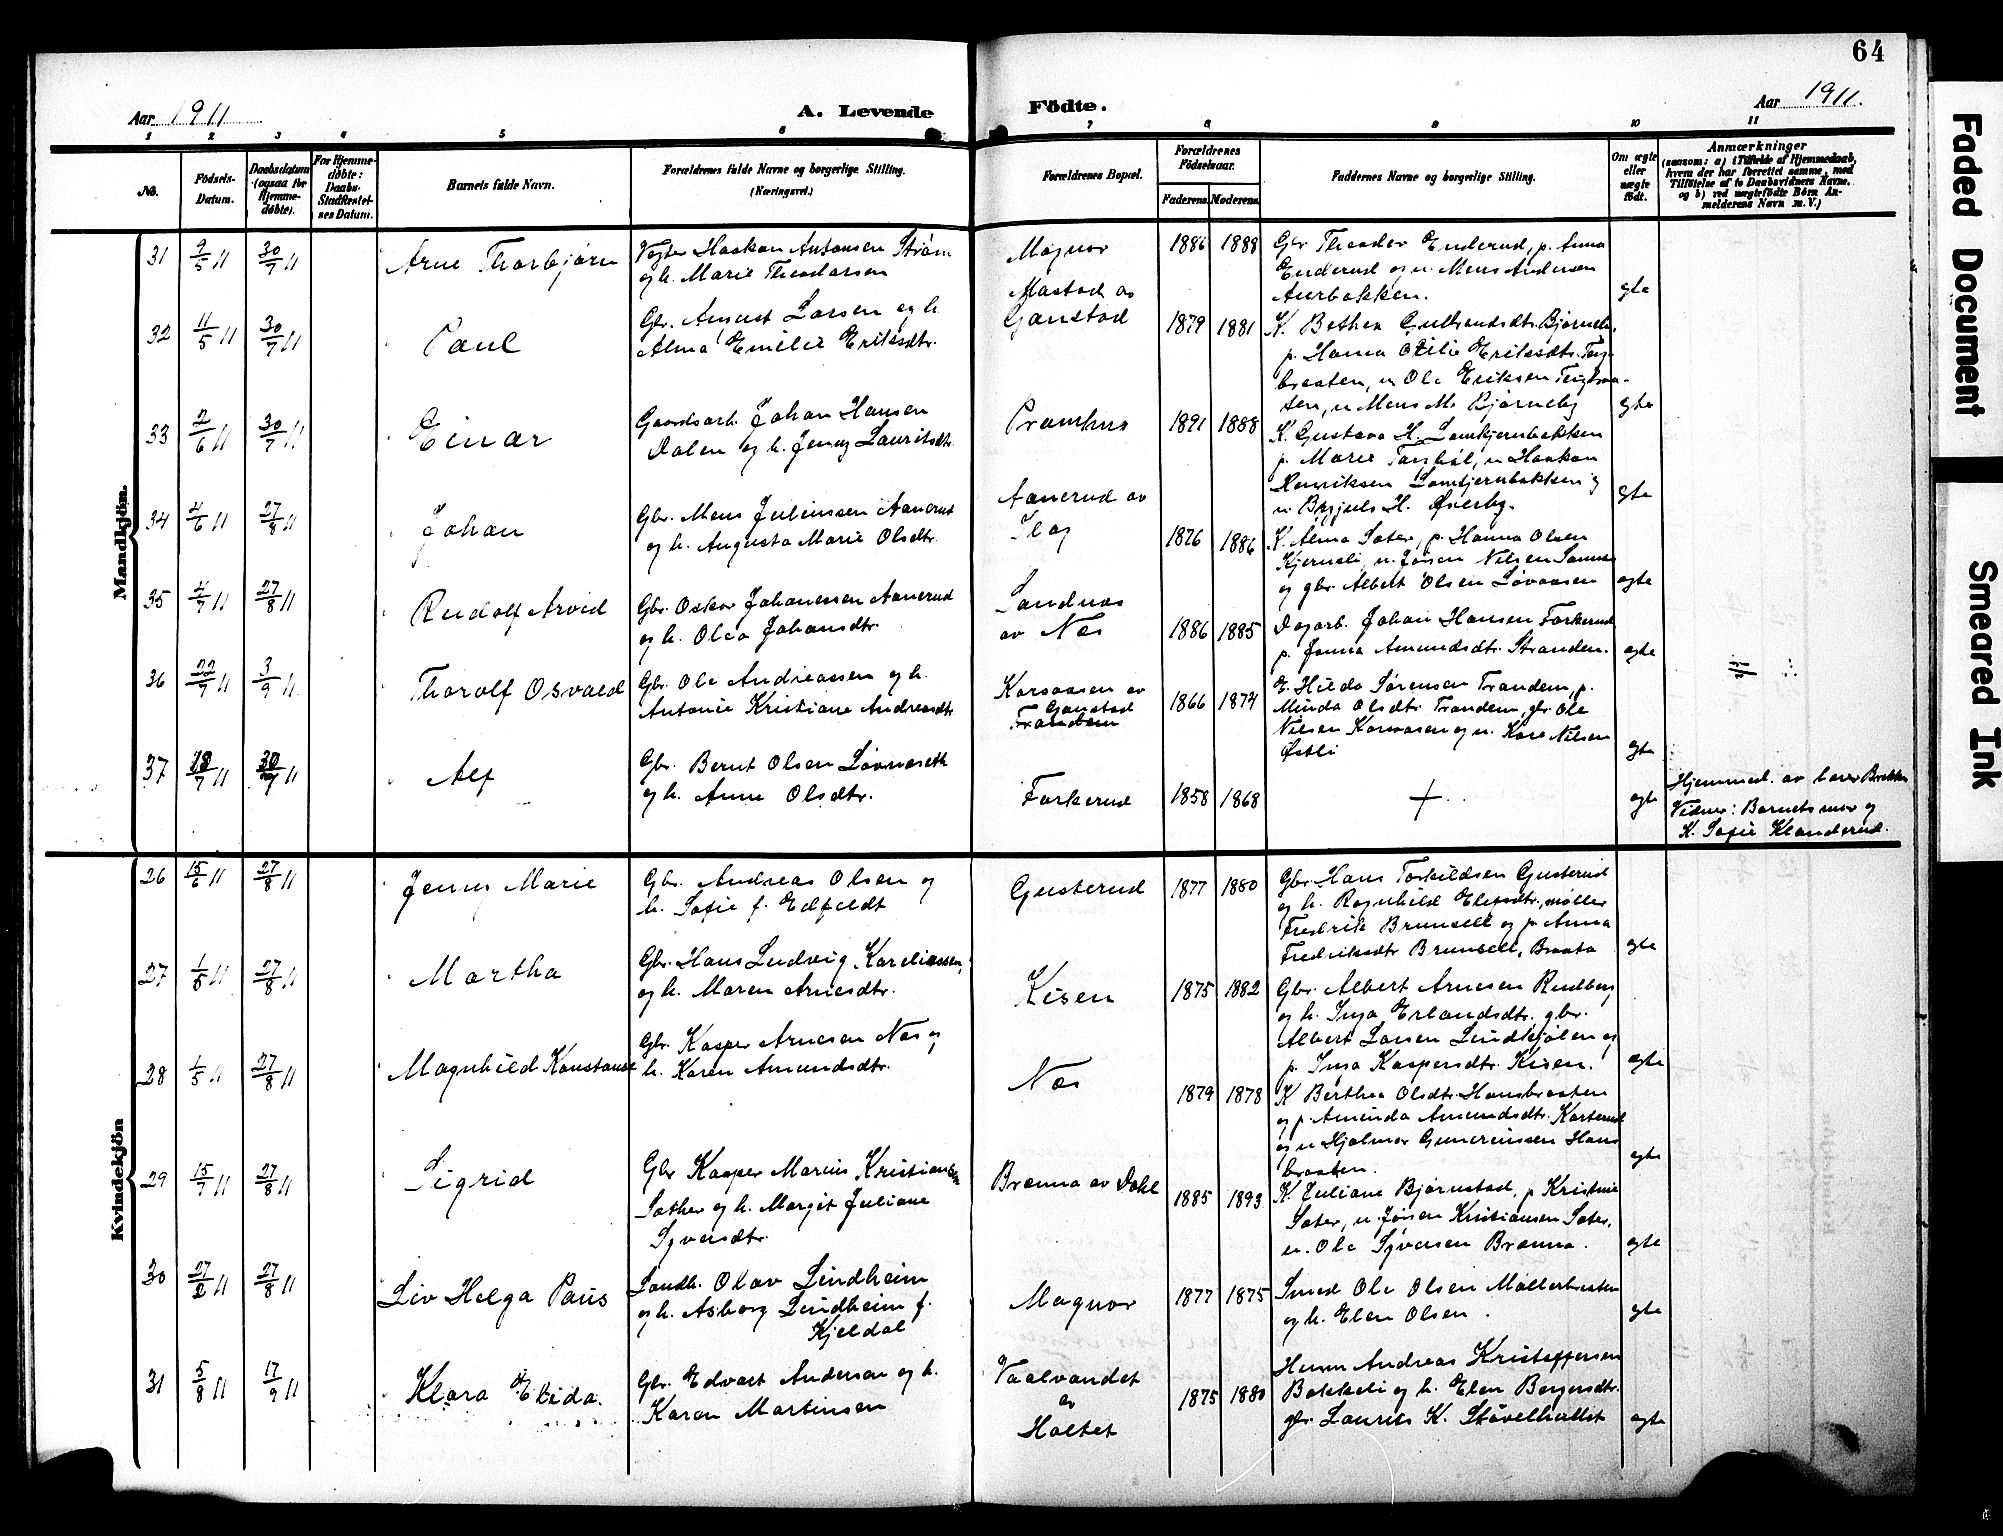 64
Aar 1911
A. Levende
Födte.
Aar 1911.
1 2 3 4 5 6 7 8 9 10 11
No.
Födsels-
Datum.
Daabsdatum
(ogsaa for
Hjemme-
døbte).
For Hjemme-
døbte:
Daabs-
Stadfæstel-
ses Datum.
Barnets fulde Navn.
Forældrenes fulde Navne og borgerlige Stilling.
(Næringsvei.)
Forældrenes Bopæl.
Forældrenes
Födselsaar.
Faderens. Moderens.
Faddernes Navne og borgerlige Stilling.
Om ægte
eller
uægte
födt.
Anmærkninger
(saasom: a) i Tilfælde af Hjemmedaab,
hvem der har forrettet samme, med
Tilføielse af to Daabsvidners Navne,
og b) ved uægtefödte Börn An-
melderens Navn m. V.)
Mandkjön.
31 9/5 11 30/7 11 Arne Thorbjørn
Haakon Antonsen Strøm
og h. Marie Theodorsen
Magnor
1886 1888
Gbr Theodor Enderud, p. Anna
Enderud og u. Mens Andersen
Aurbakken.
gte
32 11/5 11 30/7 11 Paul
Gbr. August Larsen og h.
Alma Emilie Eriksdtr.
Mastad av
Gaustad
1879 1881
K. Bethea Gulbrandsdtr. Bjørneby,
p. Hanna Otilie Eriksdtr.
braaten, u Ole Eriksen
ten, u Mens M. Bjørneby
gte
33 2/6 11 30/7 11 Einar
Gaardsarb. Johan Hansen
Dalen og h. Jenny Lauritsdtr.
Pramhus
1891 1888
K. Gustava H. Lomtjernbakken
p. Marie, u Haakon
Henriksen Lomtjernbakken og
u. H. Østerby.
gte
34 4/6 11 27/8 11 Johan
Gbr. Mens Juliussen Aanerud
og h. Augusta Marie Olsdtr.
Aanerud av
1876 1886
K. Alma Sæter, p. Hanna Olsen
Kjernsli, u. Jørgen Nilsen
og gbr. Albert Olsen Løvaasen
ægte
35 4/7 11 27/8 11 Rudolf Arvid
Gbr. Oskar Johanessen Aanerud
og h. Olea Johansdtr.
Sandnæs
av Næs
1886 1885
Dagarb. Johan Hansen Forkerud
p. Janna Amundsdtr. Stranden.
ægte
36 22/7 11 3/9 11 Thorolf Osvald
Gbr. Ole Andreassen og h.
Antonie Kristiane Andreasdtr.
Korsaasen av
Gaustad
Trandem
1866 1874
E. Hilda Sørensen Trandem, p.
Minda Olsdtr. Trandem, gbr. Ole
Nilsen Korsaasen og u. Kare Nilsen
Østli
gte
37 18/7 11 30/7 11 Alf
Gbr. Bernt Olsen Løvnæseth
og h. Anne Olsdtr.
Forkerud
1858 1868
+
ægte
Hjemmed. av lærer Brekke
Vidner: Barnets mor og
K. Sofie Klanderud.
Kvindekjön
26 15/6 11 27/8 11 Jenny Marie
Gbr. Andreas Olsen og
h. Sofie f. Edfeldt
Gusterud
1877 1880
Gbr. Hans Torkildsen Gusterud
og h. Ragnhild Elefsdtr., møller
Fredrik Brunsell og p. Anna
Fredriksdtr Brunsell, Braata
gte
27 1/5 11 27/8 11 Martha
Gbr. Hans Ludvig Kareliussen,
og h. Maren Arnesdtr.
Kisen
1875 1882
Gbr. Albert Arnesen Rudberg
og h. Inga Erlandsdtr. gbr.
Albert Larsen Lindkjølen og
p. Inga Kaspersdtr. Kisen.
ægte
28 1/5 11 27/8 11 Magnhild Konstanse
Gbr. Kasper Arnesen Næs og
h. Karen Amundsdtr.
Næs
1879 1878
K Berthea Olsdtr. Hansbraaten
og p Aminda Amundsdtr. Korterud
og u Hjalmar Guneriussen Hans
braaten.
gte
29 15/7 11 27/8 11 Sigrid
Gbr Kasper Marius Kristiansen
Sæther og h. Margit Juliane
Syversdtr.
Brænna av Dahl
1885 1893
K. Juliane Bjørnstad, p Kristine
Sæter, u. Jørgen Kristiansen Sæter,
u. Ole Syversen Brænna.
gte
30 27/2 11 27/8 11 Liv Helga Paus
Landh. Olav Lindheim
og h. Asborg Lindheim f.
Kjeldal
Magnor
1877 1875
Smed Ole Olsen Møllerbraaten
og h. Elen Olsen.
gte
31 5/8 11 17/9 11 Klara Elida.
Gbr. Edvart Anderson og h.
Karen Martinsen
Vaalvandet
av
Holtet
1875 1880
Husm Andreas Kristoffersen
Bakkeli og h. Elen Borgersdtr.
gbr. Laurits K. Støvelhaltet
ægte
Faded Document
Smeared Ink